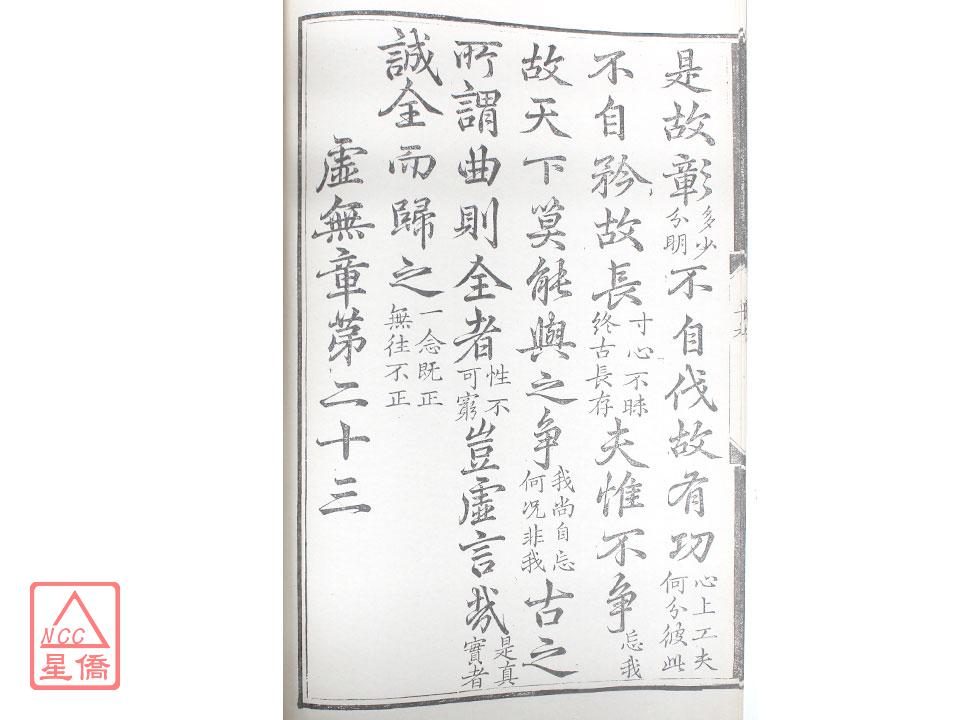 是故彰多少分明不自伐故有功心上工夫何分彼此
不自矜故長寸心不昧終古長存夫惟不爭忘我
故天下莫能與之爭我尚自忘何况非我古之
所謂曲則全者性不可窮豈虛言哉是真實者
誠全而歸之一念既正無往不正
虛無章第二十三
NCC
星僑